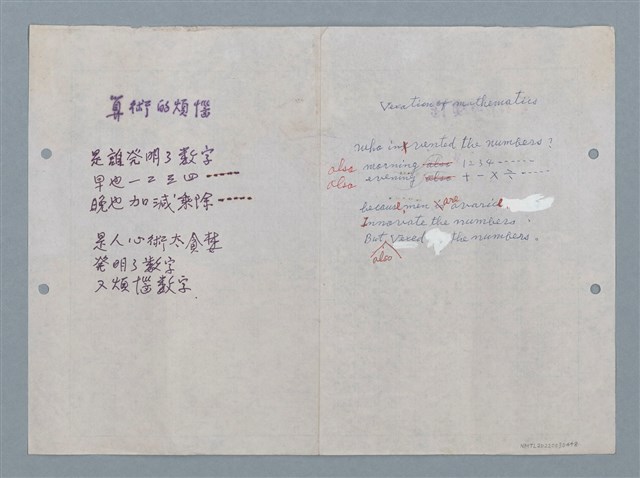 算術的煩惱
是誰発明了数字
早也一二三四-----
晚也加減乘除-----
是人心術太貪婪
発明了数字
又煩惱数字.
Vexation of mathematics
who invented the numbers?
also morning also 1 2 3 4 ------
also evening also + - × ÷ -----
because men are avaricí
Innovate the numbers.
But also Vexed the numbers.